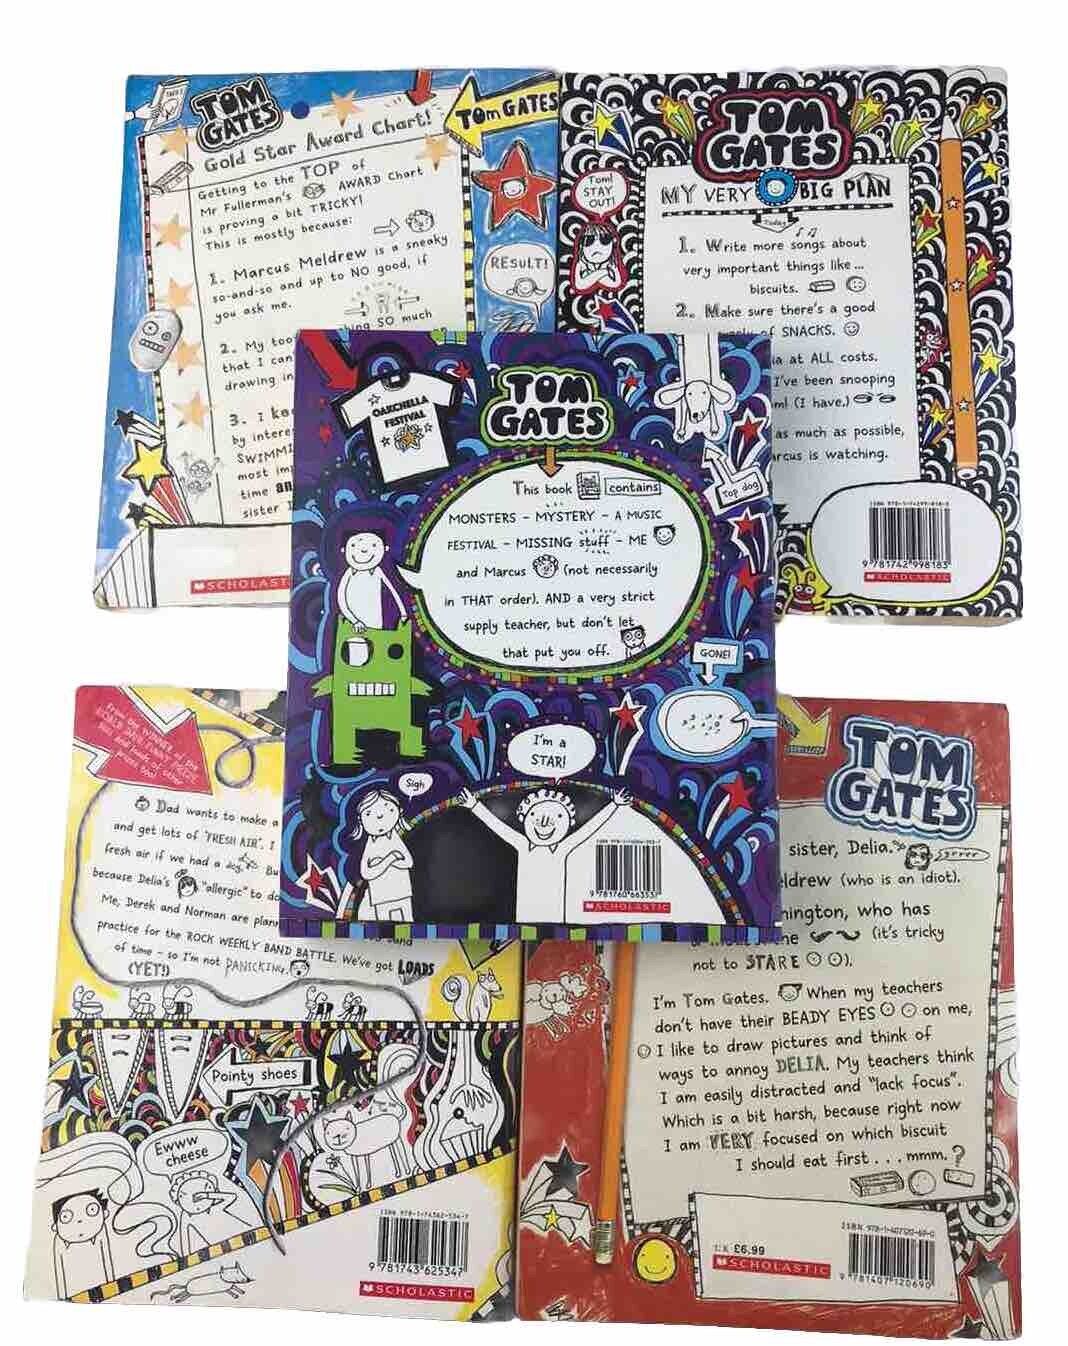 TOM
GATES
Gold Star Award Chart!
TOM GATES
Getting to the TOP of
Mr Fullerman's AWARD Chart
is proving a bit TRICKY!
This is mostly because:
1. Marcus Meldrew is a sneaky
so-and-so and up to NO good, if
you ask me.
SO much
2. My
that I can
drawing in
3. I
by
SWIMMI
most
time
sister
RESULT!
SCHOLASTIC
TOM
GATES
MY VERY BIG PLAN
Today
Tom!
STAY
OUT!
1. Write more songs about
very important things like ...
biscuits.
2. Make sure there's a good
of SNACKS.
at ALL costs.
I've been snooping
(I have.)
as much as possible,
is watching.
ISBN 978-1-74299-818-3
9 781742 998183
SCHOLASTIC
OAKCHELLA
FESTIVAL
TOM
GATES
This book contains
MONSTERS - MYSTERY - A MUSIC
FESTIVAL - MISSING stuff - ME
and Marcus (not necessarily
in THAT order). AND a very strict
supply teacher, but don't let
that put you off.
Top dog
GONE!
I'm a
STAR!
Sigh
9 781760 663537
SCHOLASTIC
From the WINNER of the
ROALD DAHL FUNNY PRIZE
Dad wants to make a
and get lots of 'FRESH AIR'. I
fresh air if we had a dog. Bu
because Delia's "allergic" to do
Me, Derek and Norman are plan
practice for the ROCK WEEKLY BAND BATTLE. We've got LOADS
of time - so I'm not PANICKING.
(YET!)
Pointy shoes
Ewww
cheese
ISBN 978-1-74362-534-7
9 781743 625347
SCHOLASTIC
TOM
GATES
sister, Delia.
grrrr
(who is an idiot).
who has
the (it's tricky
not to STARE).
I'm Tom Gates. When my teachers
don't have their BEADY EYES on me,
I like to draw pictures and think of
ways to annoy DELIA. My teachers think
I am easily distracted and "lack focus".
Which is a bit harsh, because right now
I am VERY focused on which biscuit
I should eat first . . . mmm. ?
UK £6.99
SCHOLASTIC
ISBN 978-1-407120-69-0
9 781407 120690